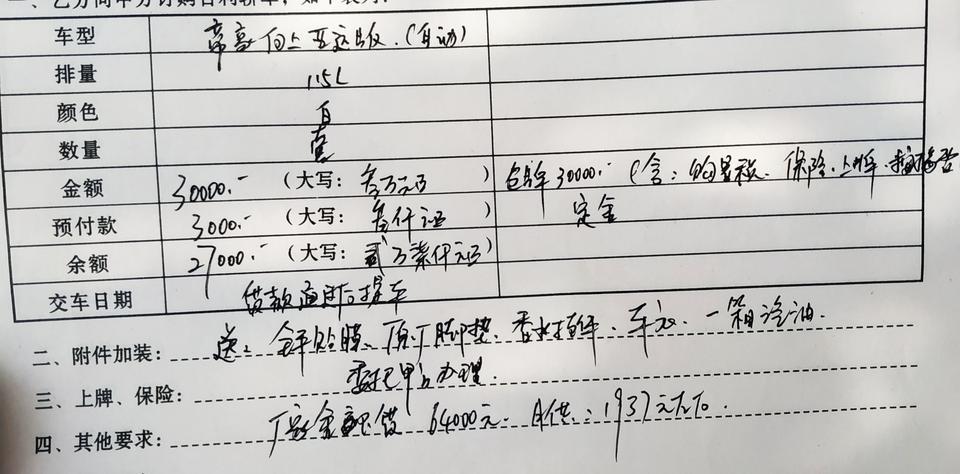 一、乙方向甲方订购吉利轿车，如下表为：
车型 帝豪向上 版.（自动）
排量 1.5L
颜色 白
数量 壹
金额 30000.- （大写：叁万元正） 包牌30000.-（含：购置税、保险、上牌、
预付款 3000.- （大写：叁仟元正） 定金
余额 27000.- （大写：贰万柒仟元正）
交车日期 贷款通过后提车
二、附件加装： 送：全车贴膜、原厂脚垫、香水 、车衣、一箱汽油.
三、上牌、保险： 委托甲方办理.
四、其他要求： 厂家金融贷 64000元.- 月供：1937元左右.